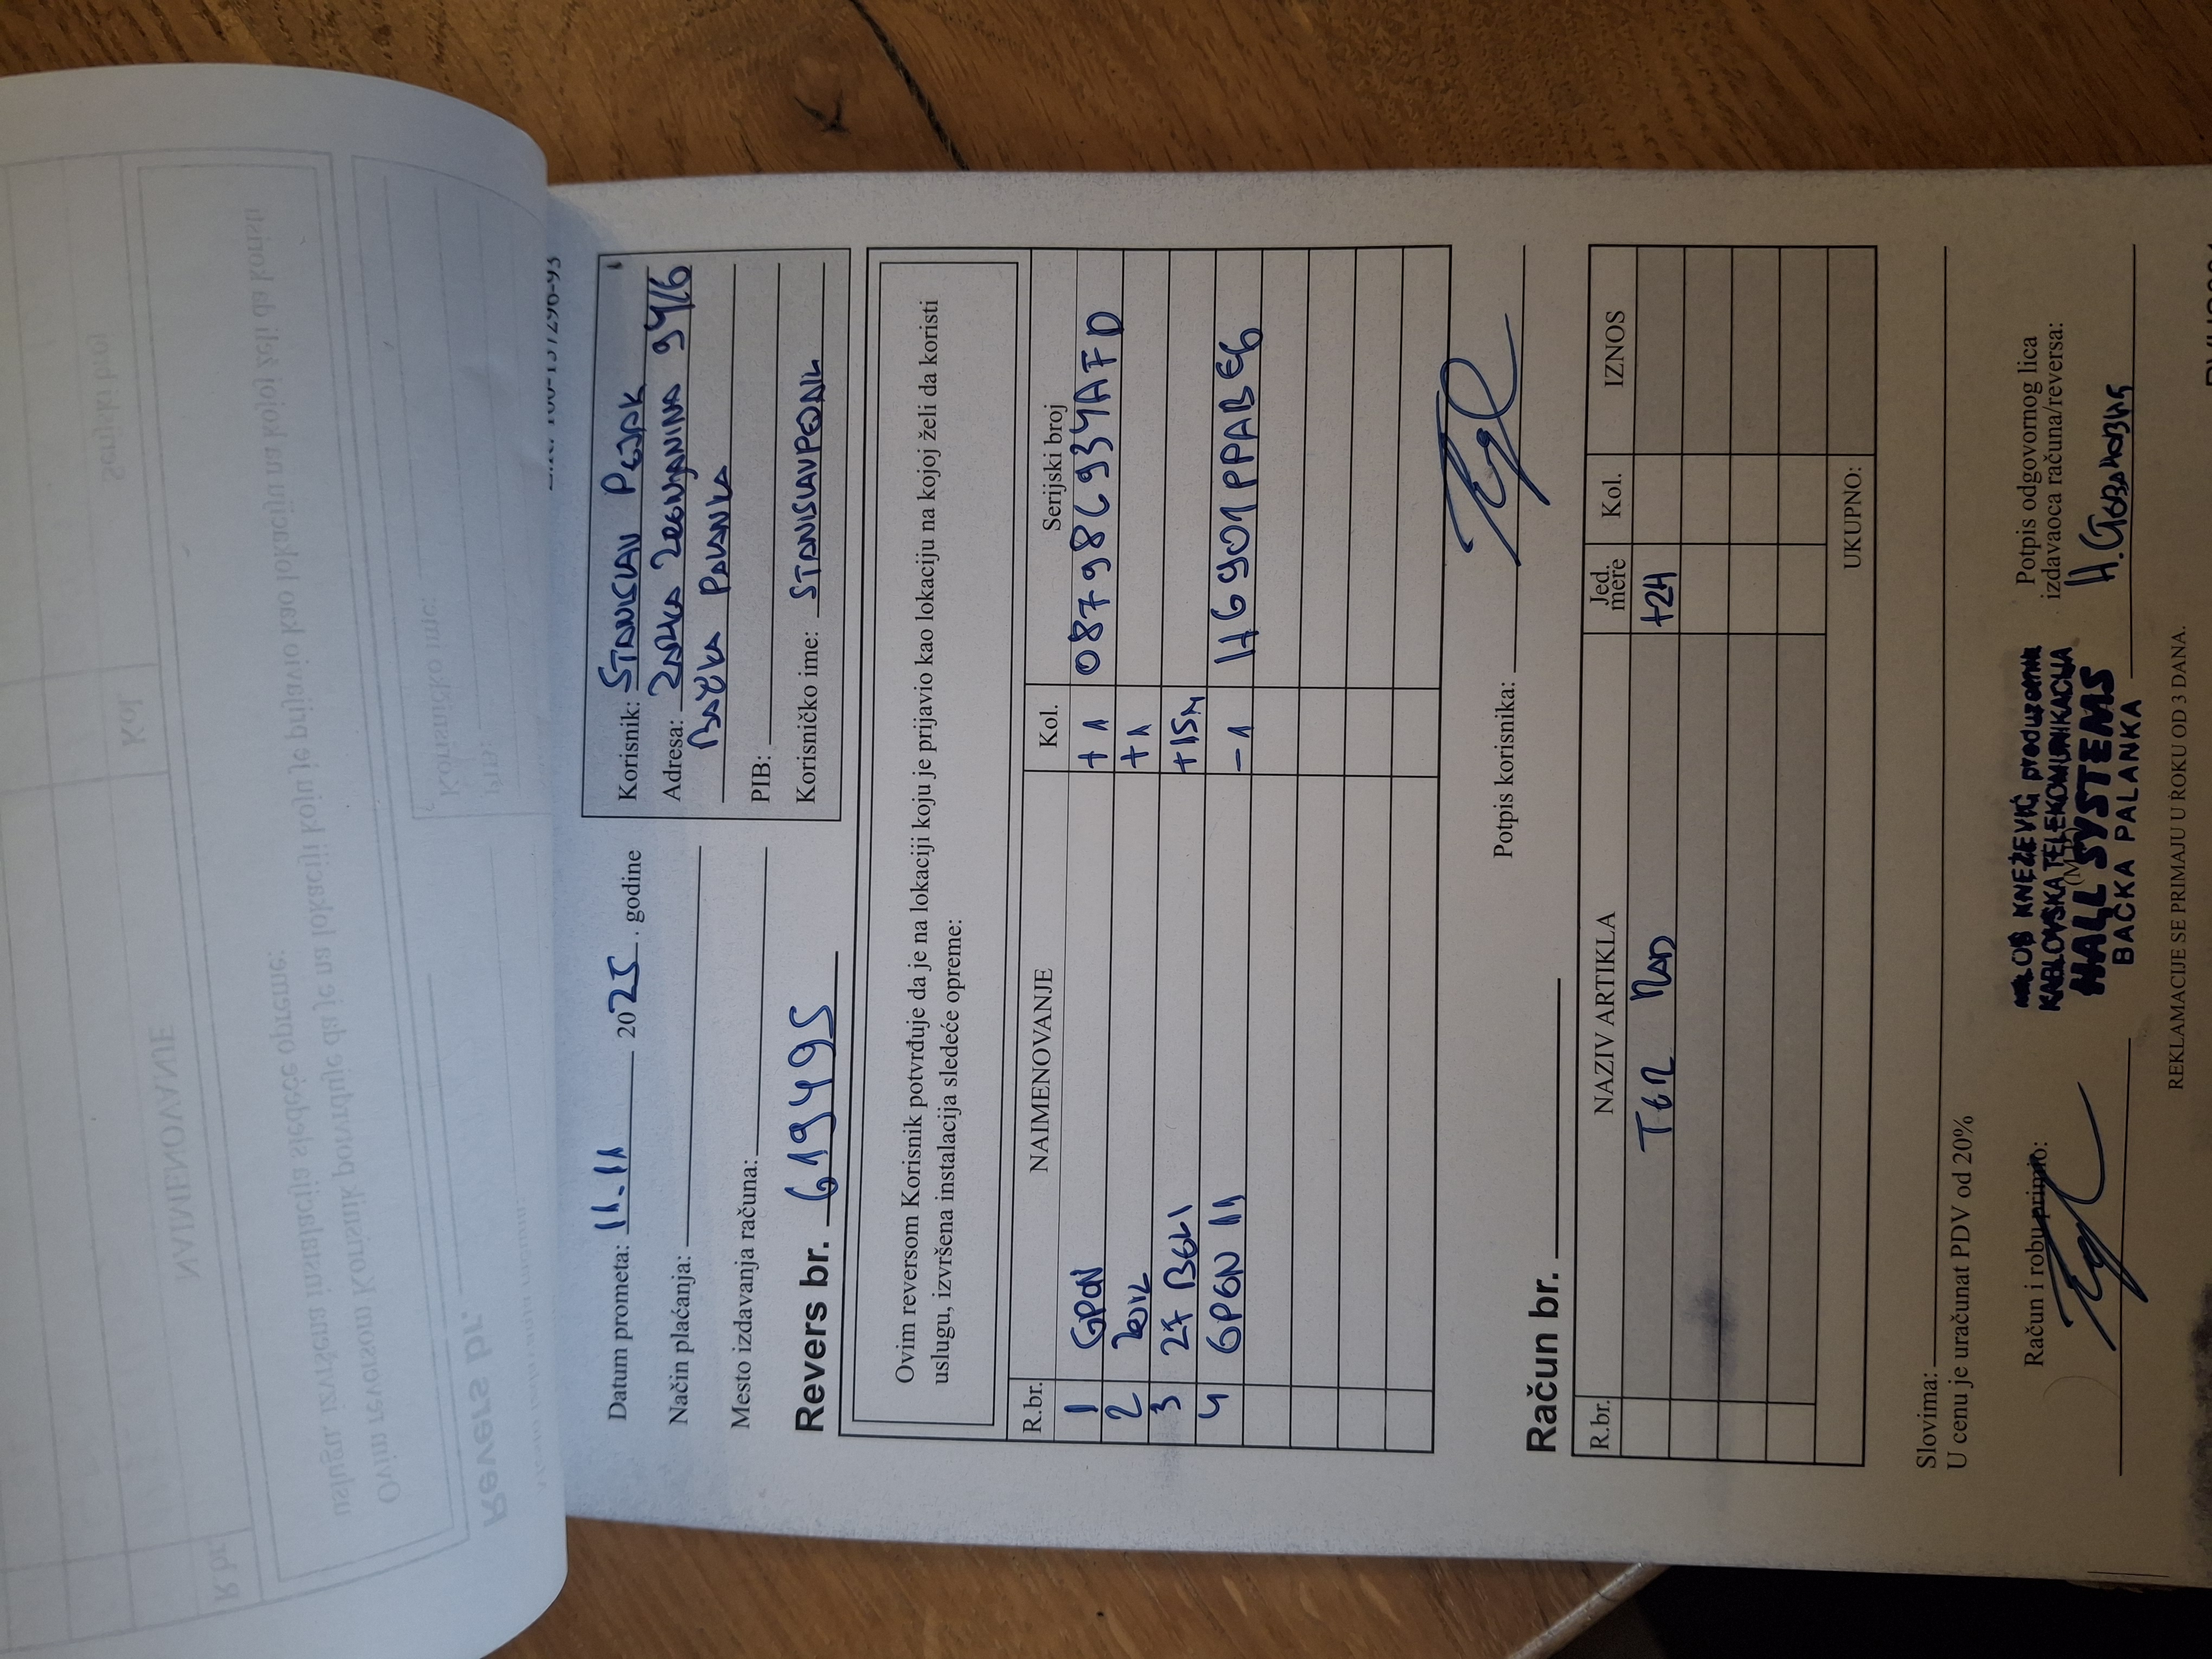 Datum prometa: 11.11 2025. godine
Način plaćanja:
Mesto izdavanja računa:
Korisnik: STANISLAV PEJAK
Adresa: ZARKA ZRENJANINA 94/6
BAČKA PALANKA
PIB:
Korisničko ime:
Revers br. 619495
Ovim reversom Korisnik potvrđuje da je na lokaciji koju je prijavio kao lokaciju na kojoj želi da koristi
uslugu, izvršena instalacija sledeće opreme:
R.br. NAIMENOVANJE Kol. Serijski broj
1 GPON +1 08798C934AFD
2 +1
3 2F BELI +15m
4 GPON 11 -1
Potpis korisnika:
Račun br.
R.br. NAZIV ARTIKLA Jed. mere Kol. IZNOS
TER RAD +2H
UKUPNO:
Slovima:
U cenu je uračunat PDV od 20%
Račun i robu primio:
KNEŽEVIĆ preduzetnik
KABLOVSKA TELEKOMUNIKACIJA
HALL SYSTEMS
BAČKA PALANKA
(M.P.)
Potpis odgovornog lica
izdavaoca računa/reversa:
REKLAMACIJE SE PRIMAJU U ROKU OD 3 DANA.